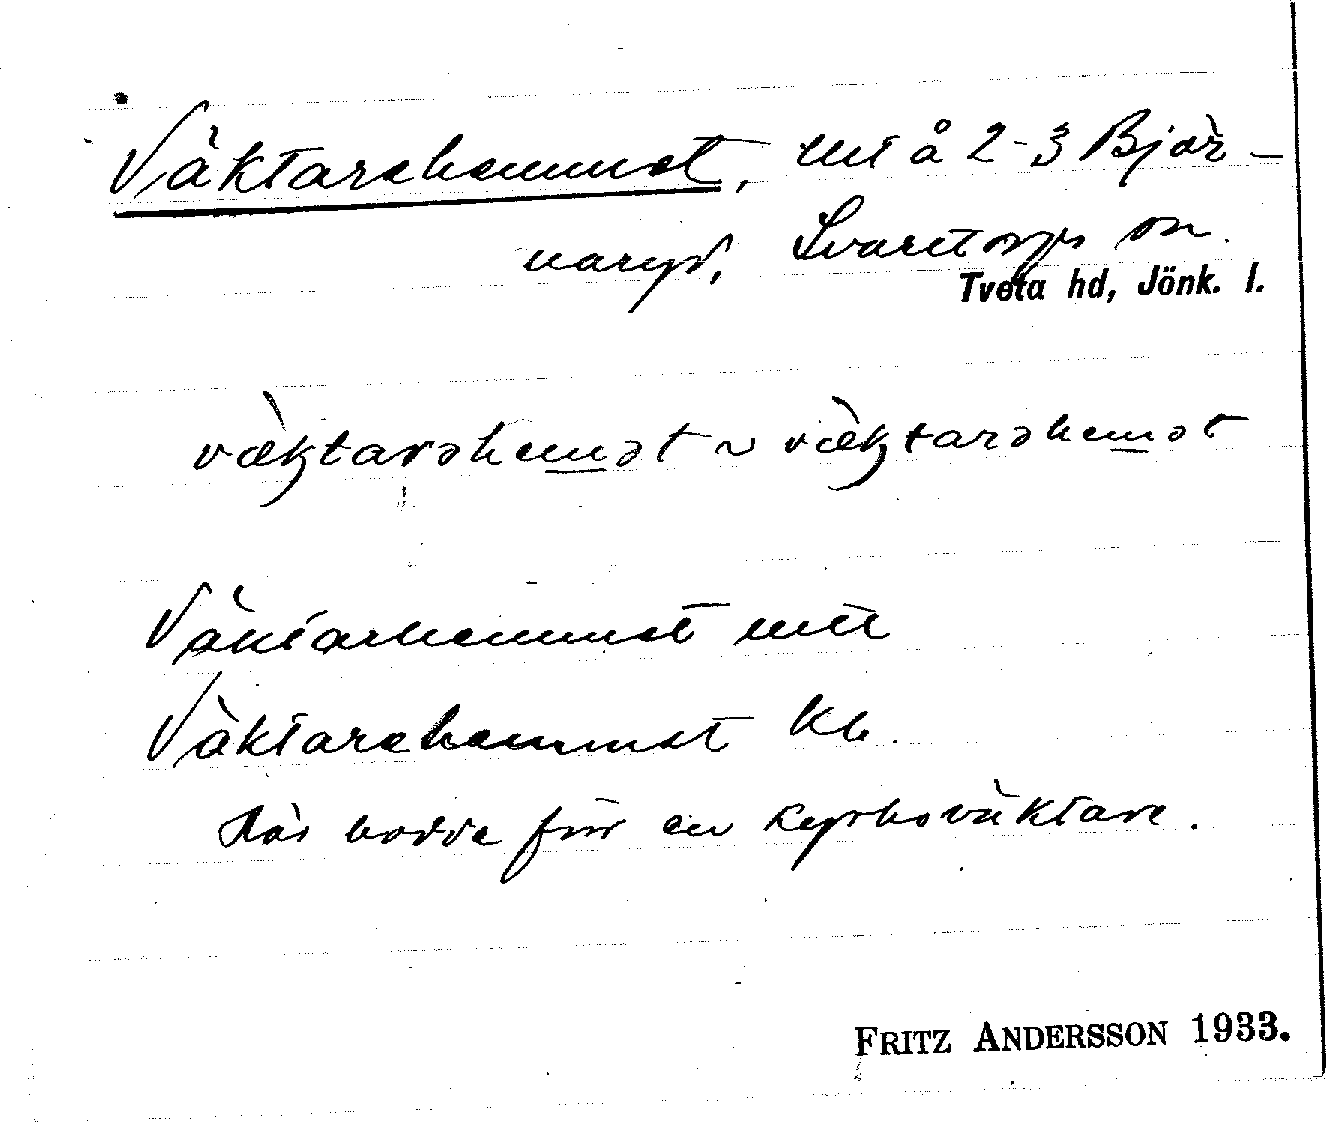 Väktarehemmet, utå 2-3 Bjär-
naryd, Svarttorps sn.
Tveta hd, Jönk. l.
væktarəhemət ~ væktarəhemət
Väktarhemmet
Väktarehemmet Kb.
Här bodde förr en kyrkoväktare.
FRITZ ANDERSSON 1933.